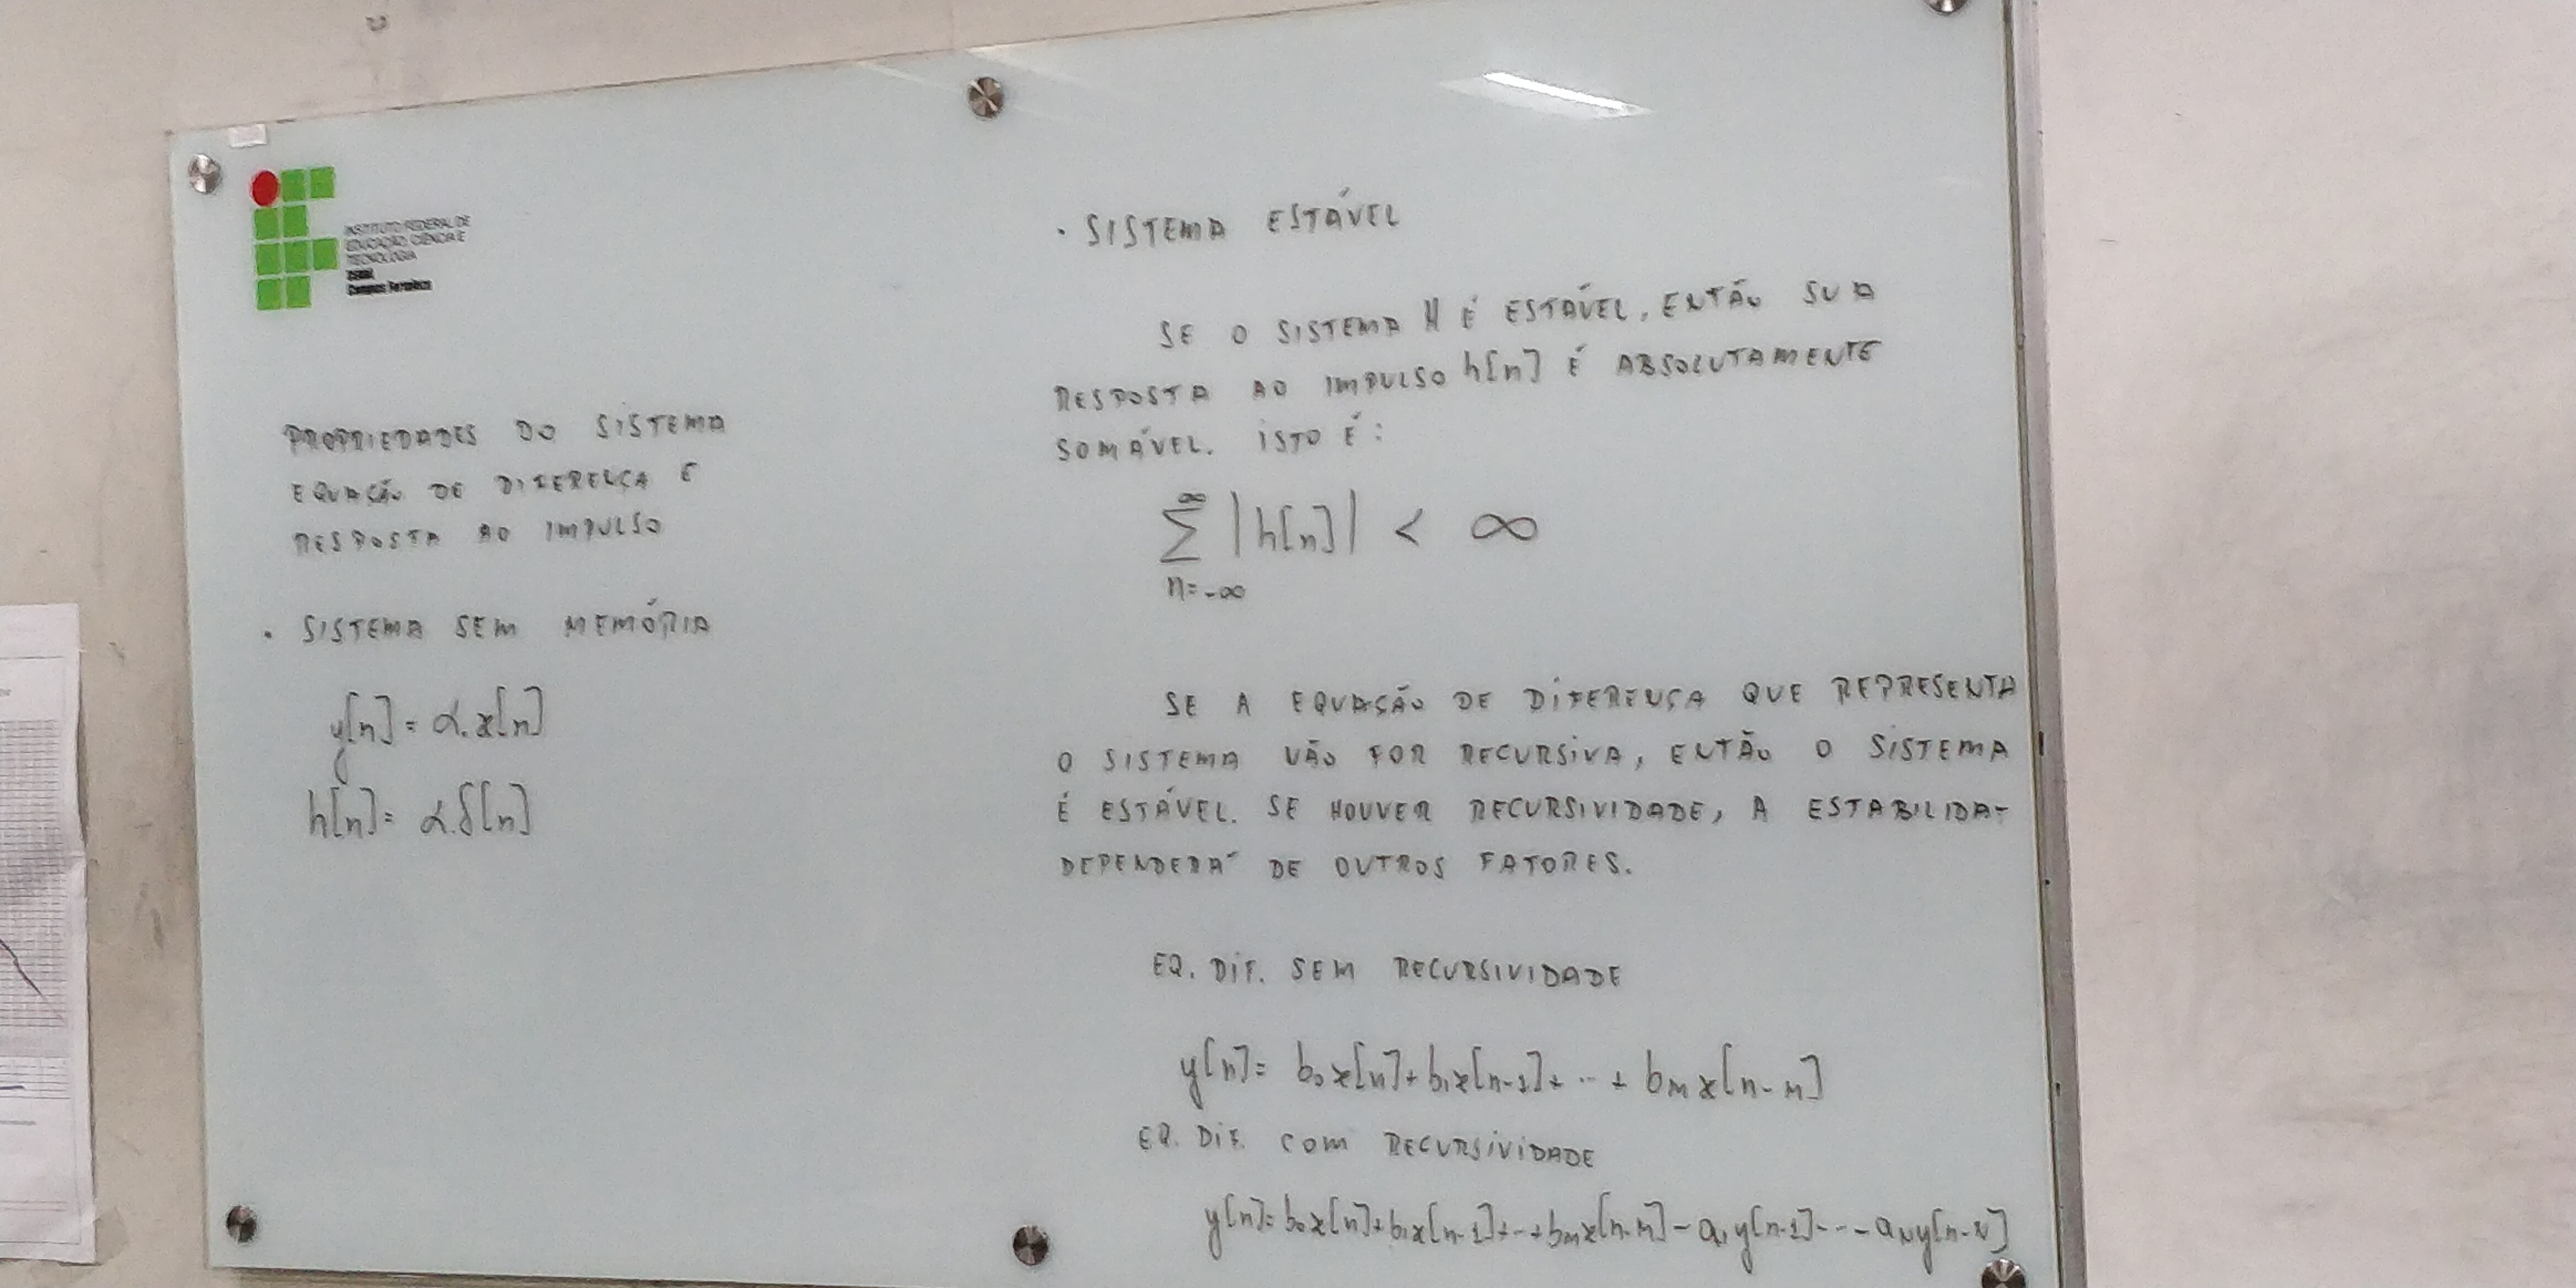 INSTITUTO FEDERAL DE
EDUCAÇÃO, CIÊNCIA E
TECNOLOGIA
CEARÁ
Campus Fortaleza
PROPRIEDADES DO SISTEMA
EQUAÇÃO DE DIFERENÇA E
RESPOSTA AO IMPULSO
• SISTEMA SEM MEMÓRIA
y[n] = α.x[n]
h[n] = α.δ[n]
• SISTEMA ESTÁVEL
SE O SISTEMA H É ESTÁVEL, ENTÃO SUA
RESPOSTA AO IMPULSO h[n] É ABSOLUTAMENTE
SOMÁVEL. ISTO É:
∞
∑ |h[n]| < ∞
n=-∞
SE A EQUAÇÃO DE DIFERENÇA QUE REPRESENTA
O SISTEMA NÃO FOR RECURSIVA, ENTÃO O SISTEMA
É ESTÁVEL. SE HOUVER RECURSIVIDADE, A ESTABILIDA-
DEPENDERÁ DE OUTROS FATORES.
EQ. DIF. SEM RECURSIVIDADE
y[n] = b₀x[n] + b₁x[n-1] + ... + bₘx[n-M]
EQ. DIF. COM RECURSIVIDADE
y[n] = b₀x[n] + b₁x[n-1] + ... + bₘx[n-M] - a₁y[n-1] - ... - a_N y[n-N]